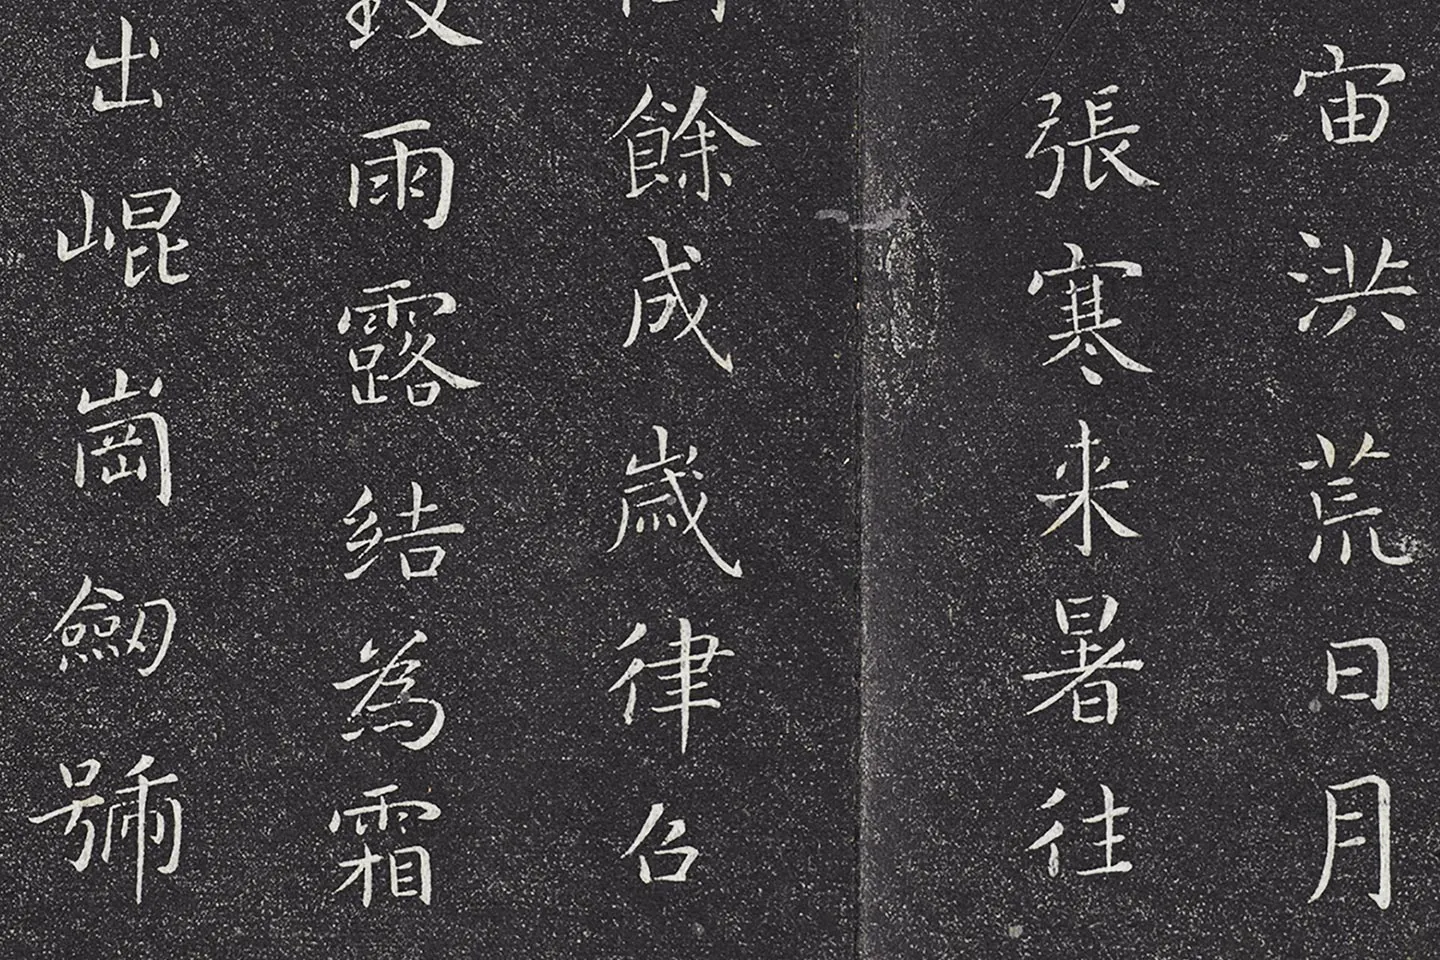 宙洪荒日月
張寒来暑往
餘成歲律召
致雨露結為霜
出崐崗劎號